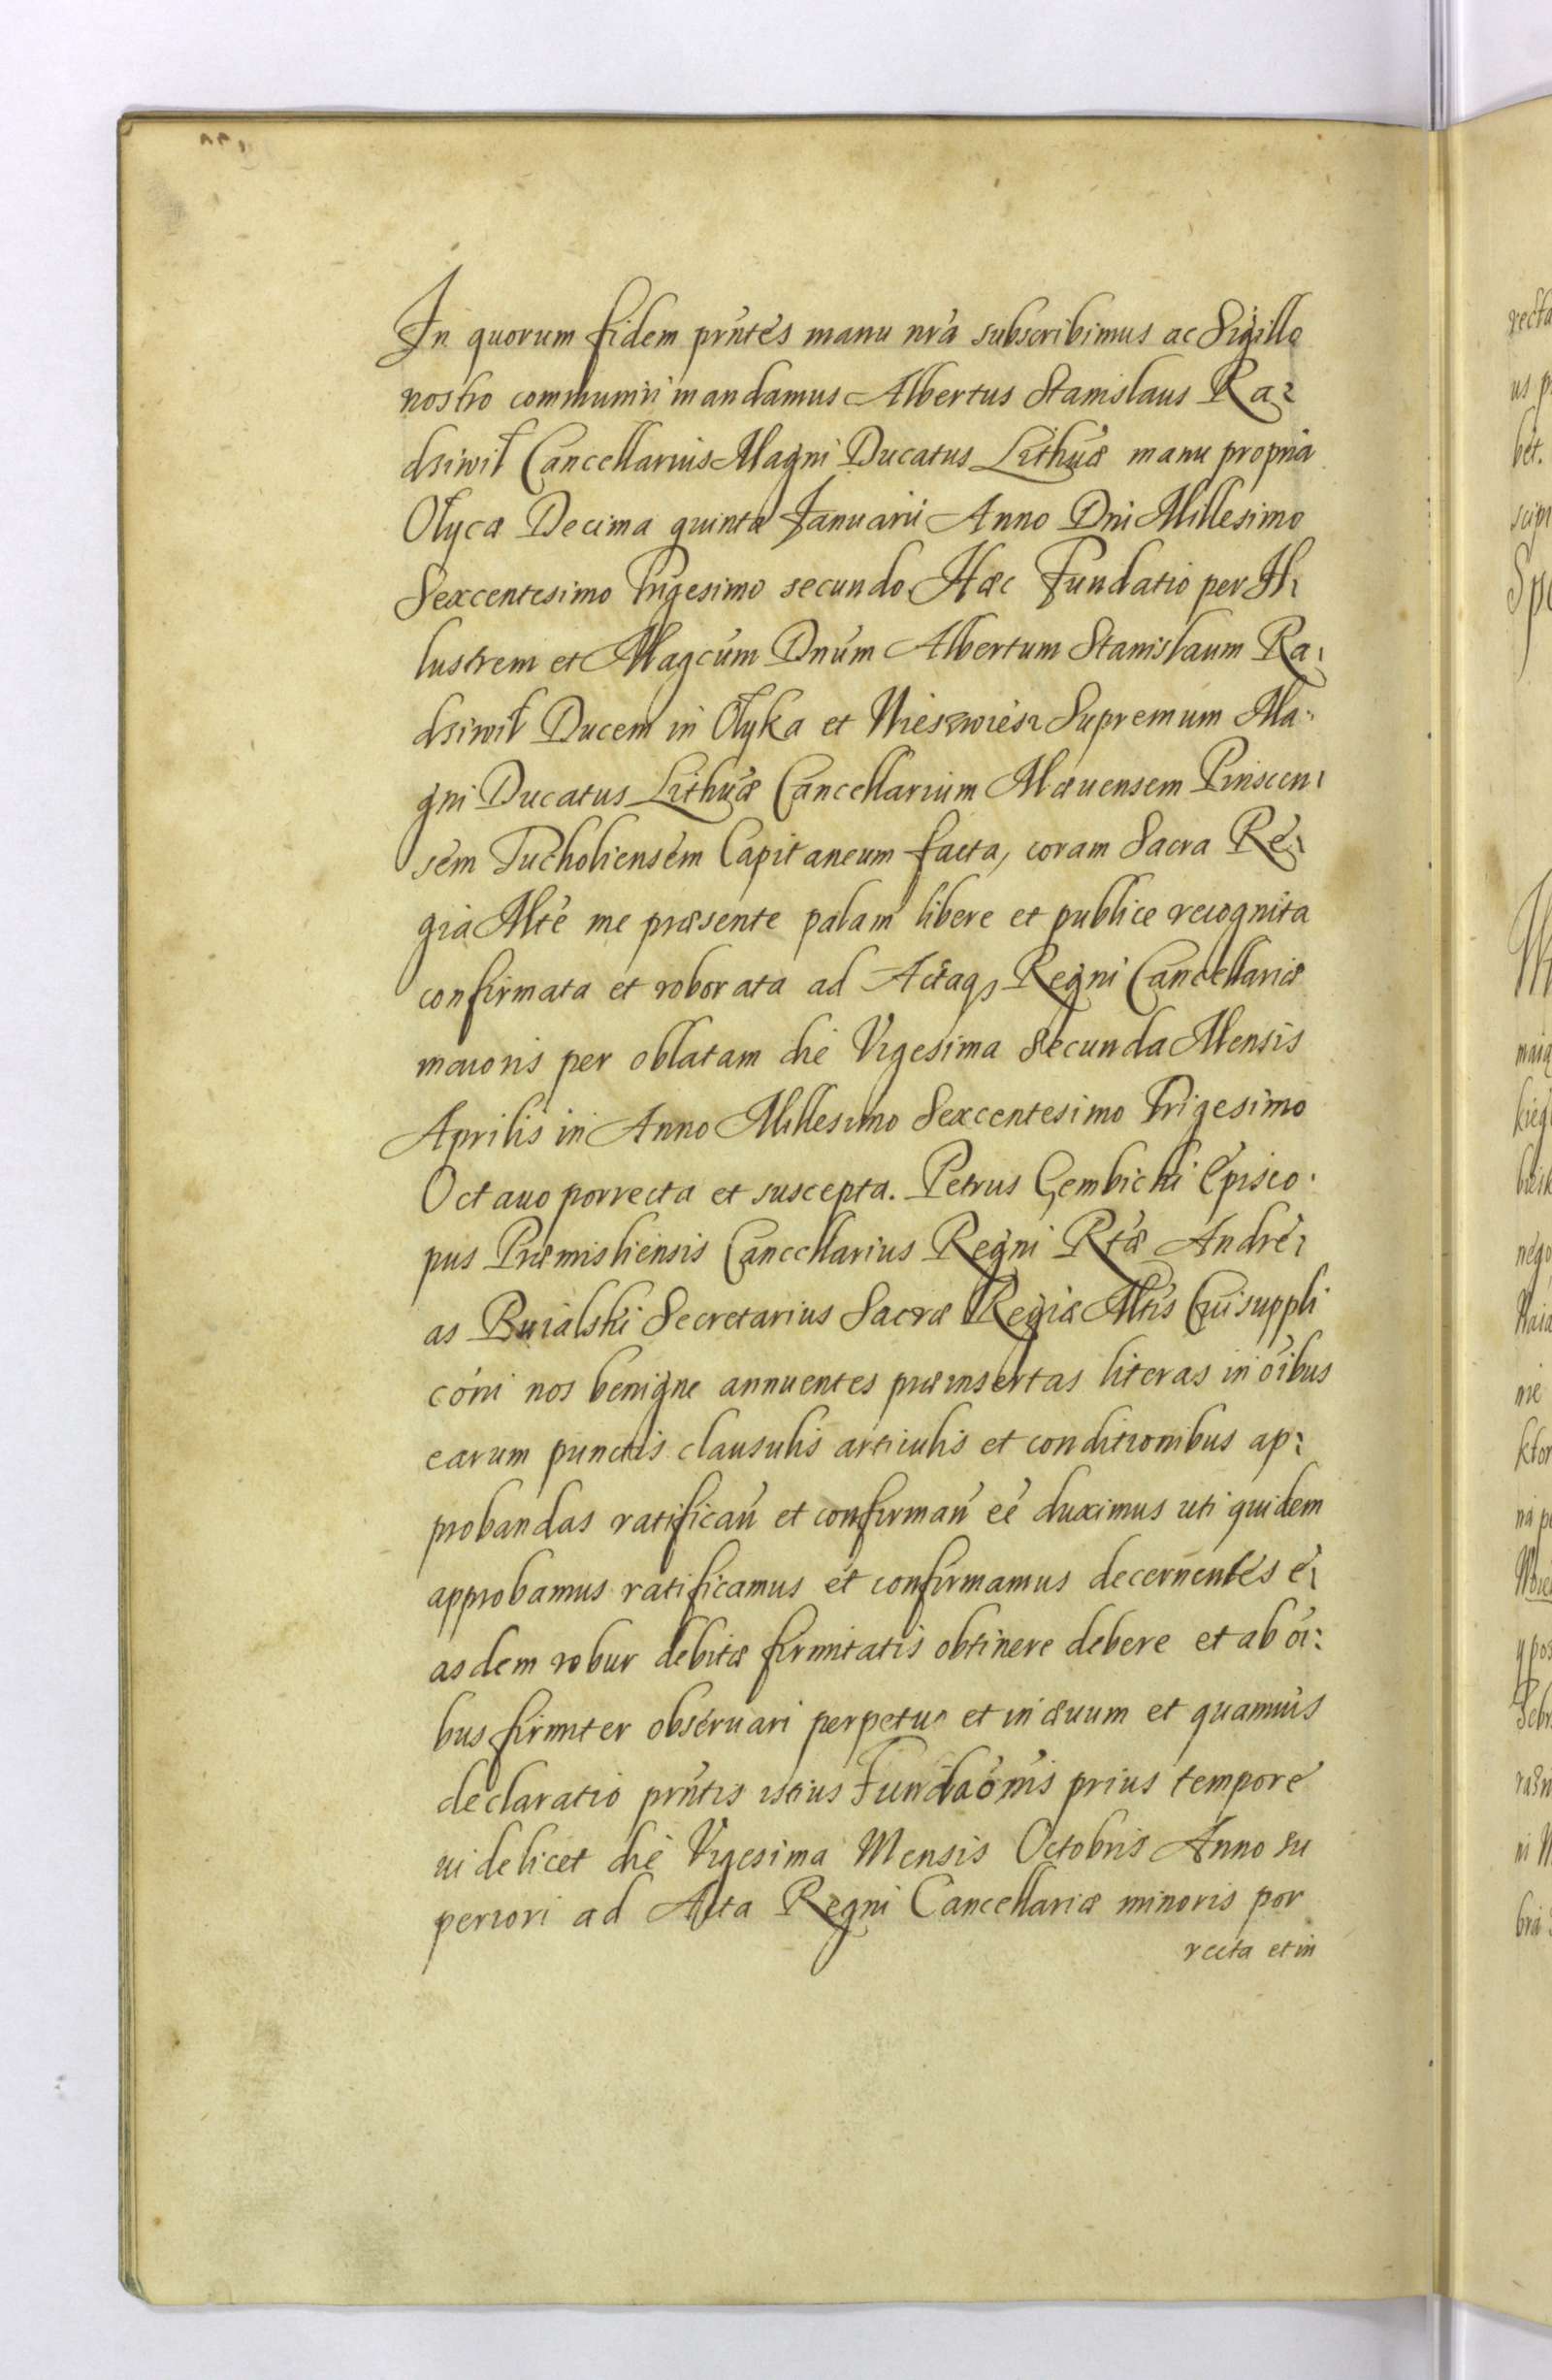 In quorum fidem prntes manu nra subscribimus ac Sigillo
nostro communiri mandamus Albertus Stanislaus Ra:
dsiwił Cancellarius Magni Ducatus Lithuæ manu propria
Ołycæ Decima quinta Januarii Anno Dni Millesimo
Sexcentesimo Trigesimo secundo. Hæc Fundatio per Il:
lustrem et Magcum Dnum Albertum Stanislaum Ra:
dsiwił Ducem in Ołyka et Nieswies: Supremum Ma:
gni Ducatus Lithuæ Cancellarium Mæuensem Pinscen:
sem Tucholiensem Capitaneum facta, coram Sacra Re:
gia Mte me præsente palam libere et publice recognita
confirmata et roborata ad Actaq, Regni Cancellariæ
maioris per oblatam die Vigesima Secunda Mensis
Aprilis in Anno Millesimo Sexcentesimo Trigesimo
Octauo porrecta et suscepta. Petrus Gembicki Episco:
pus Præmisliensis Cancellarius Regni Rtæ Andre:
as Buialski Secretarius Sacræ Regiæ Mtis Cui suppli
coni nos benigne annuentes præinsertas literas in oibus
earum punctis clausulis articulis et conditionibus ap:
probandas ratifican et confirman ee duximus uti quidem
approbamus ratificamus et confirmamus decernentes e:
asdem robur debitæ firmitatis obtinere debere et ab oi:
bus firmiter obseruari perpetuo et in æuum et quamuis
declaratio prntis istius Fundaonis prius tempore
uidelicet die Vigesima Mensis Octobris Anno su
periori ad Acta Regni Cancellariæ minoris por
recta et in